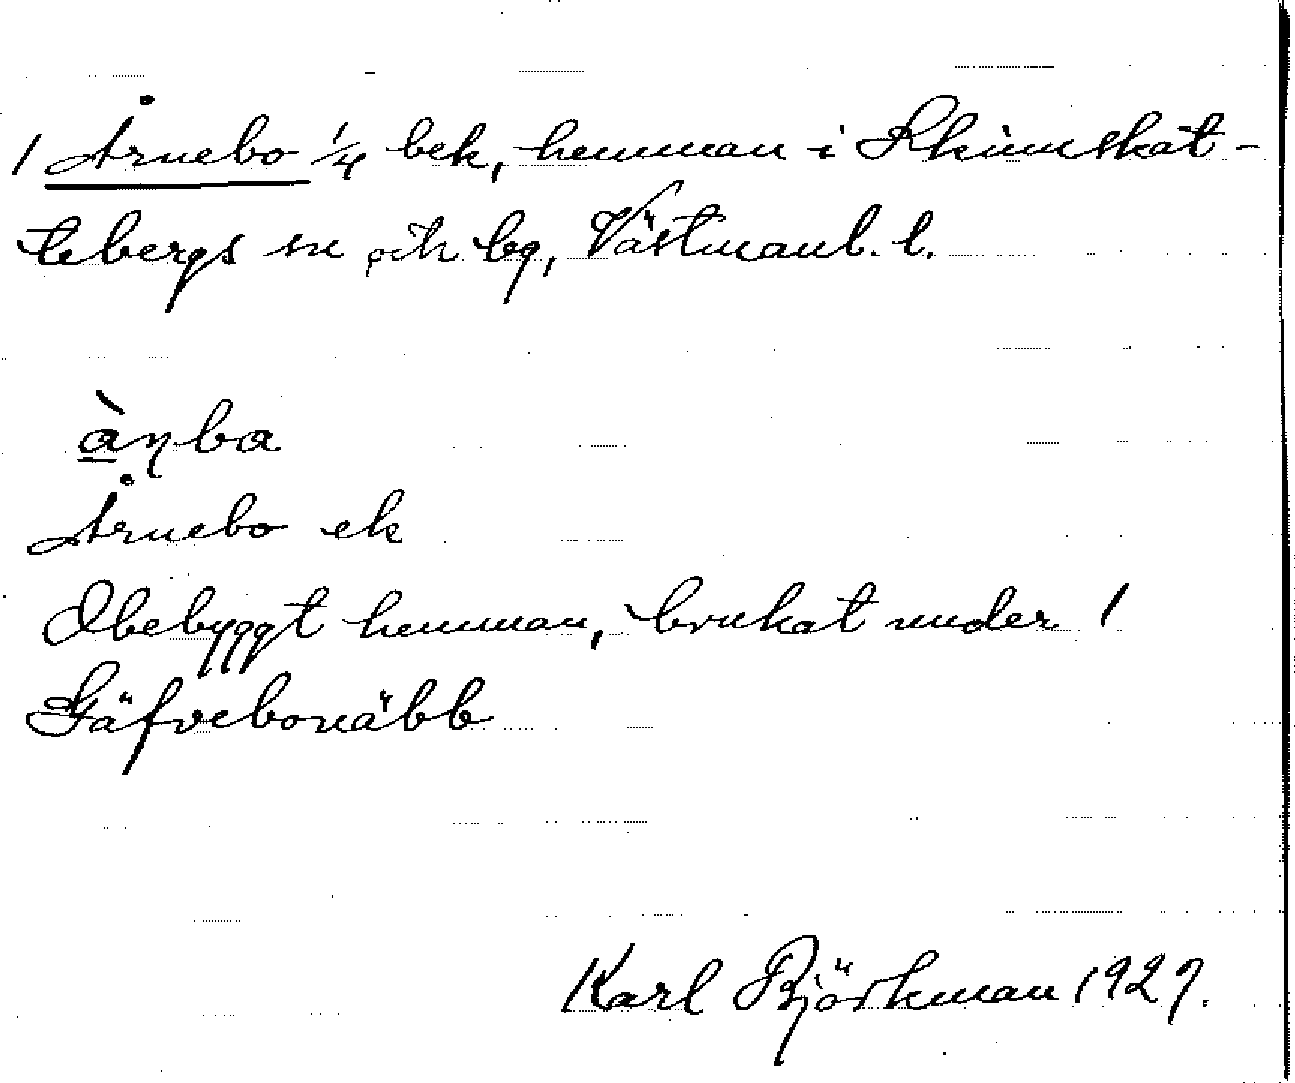 1 Årnebo 1/4 bek, hemman i Skinnskat-
tebergs sn och bg, Västmanl. l.
àṇba
Årnebo ek
Obebyggt hemman, brukat under 1
Gäfvebonäbb
Karl Björkman 1927.